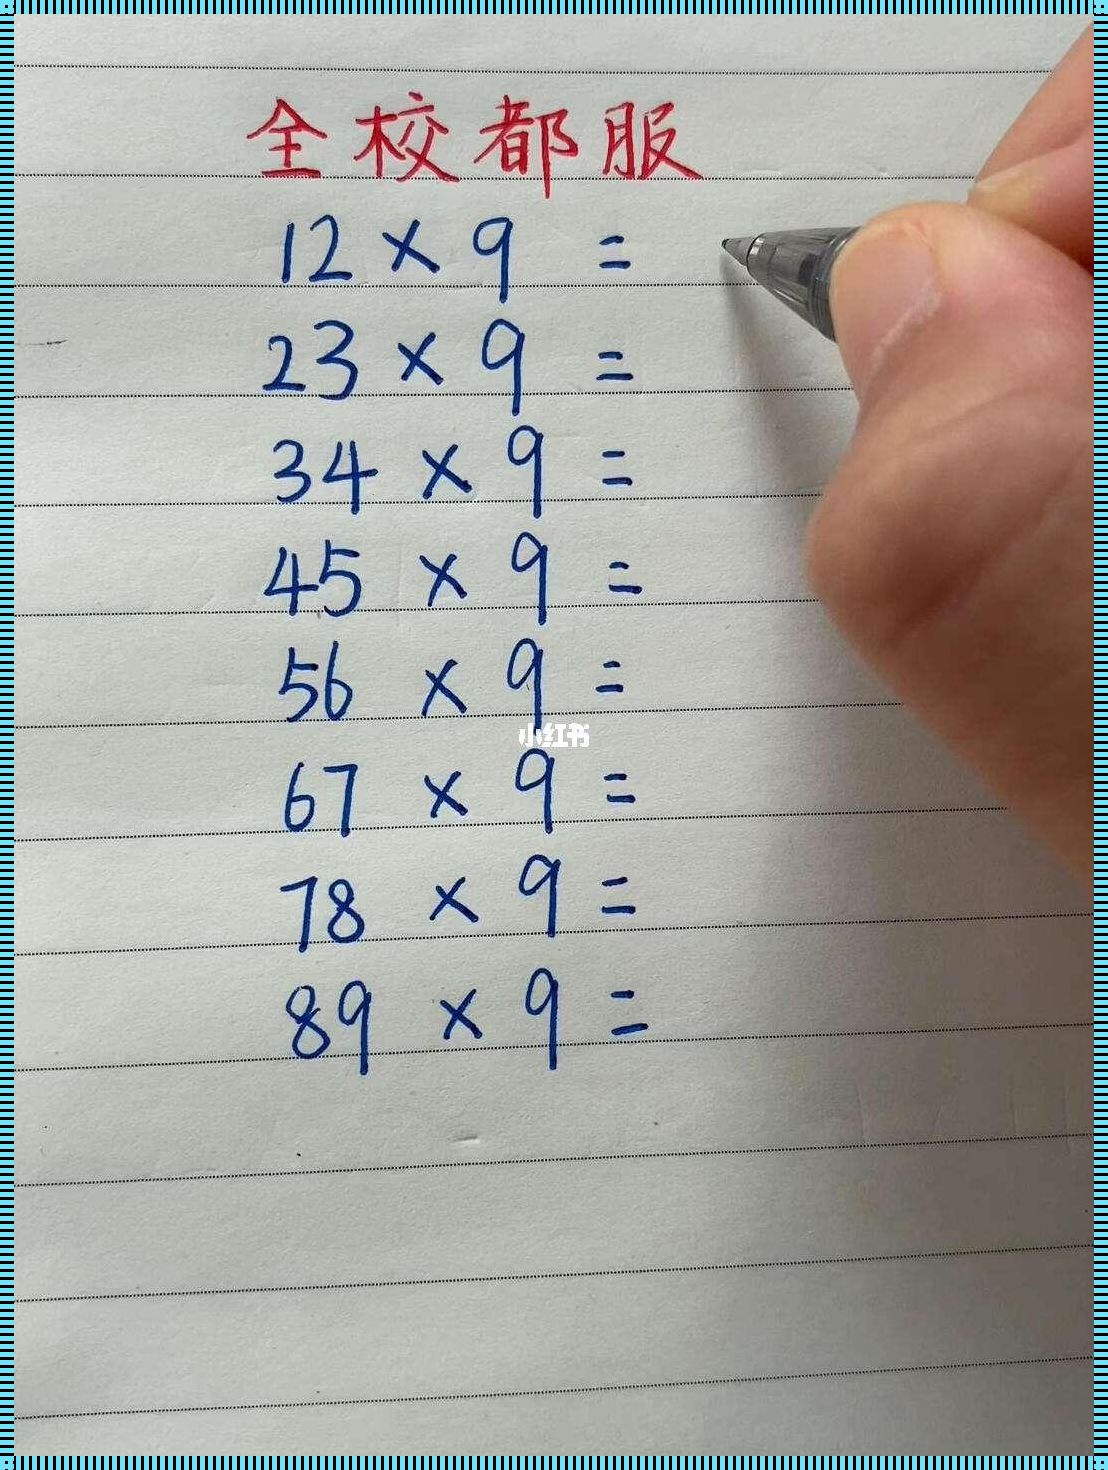 全校都服
12 × 9 =
23 × 9 =
34 × 9 =
45 × 9 =
56 × 9 =
小红书
67 × 9 =
78 × 9 =
89 × 9 =